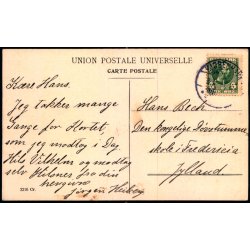 UNION POSTALE UNIVERSELLE
CARTE POSTALE
Kære Hans.
Jeg takker mange
Gange for Kortet,
som jeg modtog i Dag
Hils Vilhelm og modtag
selv Hilsner fra din
hengivne
Jørgen
Hans Bech
Den kongelige Døvstumme-
skole i Fredericia
Jylland
5